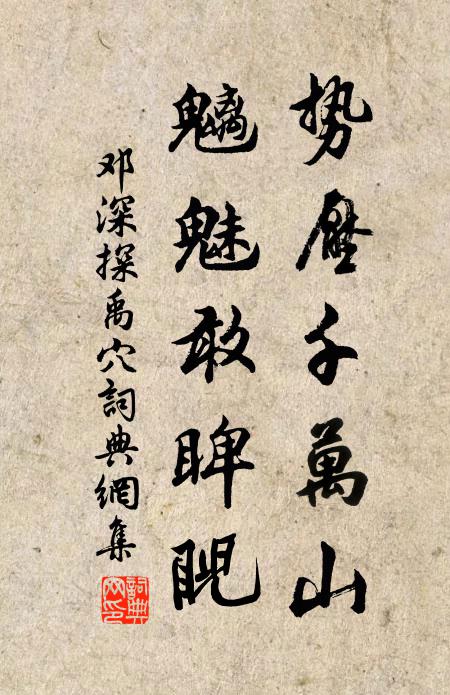 势压千萬山
魑魅敢睥睨
邓深探禹穴詞典網集
詞典網印